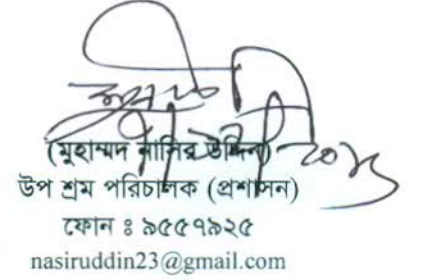 (মুহাম্মদ নাসির উদ্দিন)
উপ শ্রম পরিচালক (প্রশাসন)
ফোন ঃ ৯৫৫৭৯২৫
nasiruddin23@gmail.com